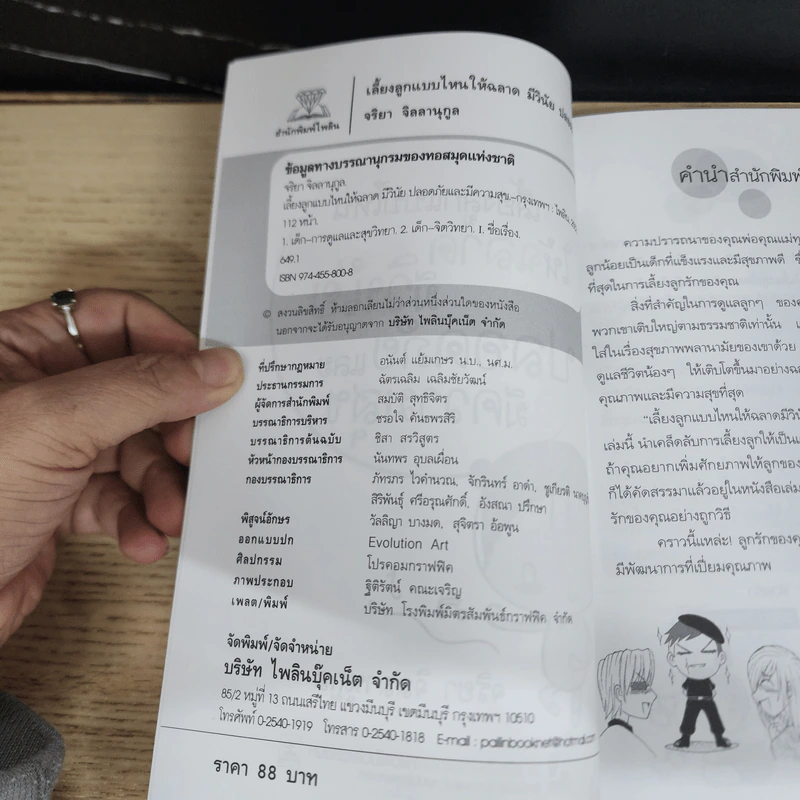 สำนักพิมพ์ไพลิน
เลี้ยงลูกแบบไหนให้ฉลาด มีวินัย
จริยา จิลลานุกูล
ข้อมูลทางบรรณานุกรมของหอสมุดแห่งชาติ
จริยา จิลลานุกูล.
เลี้ยงลูกแบบไหนให้ฉลาด มีวินัย ปลอดภัยและมีความสุข.--กรุงเทพฯ : ไพลิน,
112 หน้า.
1. เด็ก--การดูแลและสุขวิทยา. 2. เด็ก--จิตวิทยา. I. ชื่อเรื่อง.
649.1
ISBN 974-455-800-8
© สงวนลิขสิทธิ์ ห้ามลอกเลียนไม่ว่าส่วนหนึ่งส่วนใดของหนังสือ
นอกจากจะได้รับอนุญาตจาก บริษัท ไพลินบุ๊คเน็ต จำกัด
ที่ปรึกษากฎหมาย อนันต์ แย้มเกษร น.บ., นศ.ม.
ประธานกรรมการ ฉัตรเฉลิม เฉลิมชัยวัฒน์
ผู้จัดการสำนักพิมพ์ สมบัติ สุทธิจิตร
บรรณาธิการบริหาร ชรอใจ คันธพรสิริ
บรรณาธิการต้นฉบับ ชิสา สรวิสูตร
หัวหน้ากองบรรณาธิการ นันทพร อุบลเผื่อน
กองบรรณาธิการ ภัทรภร ไวคำนวณ, จักรินทร์ อาดำ, ชูเกียรติ
สิริพันธุ์ ศรีอรุณศักดิ์, อังสณา ปรึกษา
พิสูจน์อักษร วัลลิญา บางมด, สุจิตรา อ้อพูน
ออกแบบปก Evolution Art
ศิลปกรรม โปรคอมกราฟฟิค
ภาพประกอบ ฐิติรัตน์ คณะเจริญ
เพลต/พิมพ์ บริษัท โรงพิมพ์มิตรสัมพันธ์กราฟฟิค จำกัด
จัดพิมพ์/จัดจำหน่าย
บริษัท ไพลินบุ๊คเน็ต จำกัด
85/2 หมู่ที่ 13 ถนนเสรีไทย แขวงมีนบุรี เขตมีนบุรี กรุงเทพฯ 10510
โทรศัพท์ 0-2540-1919 โทรสาร 0-2540-1818 E-mail : pailinbooknet@hotmail.com
ราคา 88 บาท
คำนำสำนักพิมพ์
ความปรารถนาของคุณพ่อคุณแม่
ลูกน้อยเป็นเด็กที่แข็งแรงและมีสุขภาพดี
ที่สุดในการเลี้ยงลูกรักของคุณ
สิ่งที่สำคัญในการดูแลลูกๆ
พวกเขาเติบใหญ่ตามธรรมชาติเท่านั้น
ใส่ในเรื่องสุขภาพพลานามัยของเขาด้วย
ดูแลชีวิตน้องๆ ให้เติบโตขึ้นมาอย่าง
คุณภาพและมีความสุขที่สุด
"เลี้ยงลูกแบบไหนให้ฉลาดมีวินัย
เล่มนี้ นำเคล็ดลับการเลี้ยงลูกให้เป็น
ถ้าคุณอยากเพิ่มศักยภาพให้ลูกของ
ก็ได้คัดสรรมาแล้วอยู่ในหนังสือเล่ม
รักของคุณอย่างถูกวิธี
คราวนี้แหล่ะ! ลูกรักของคุณ
มีพัฒนาการที่เปี่ยมคุณภาพ